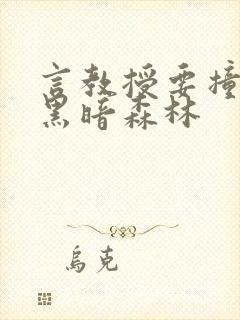 言教授要撞
黑暗森林
乌克